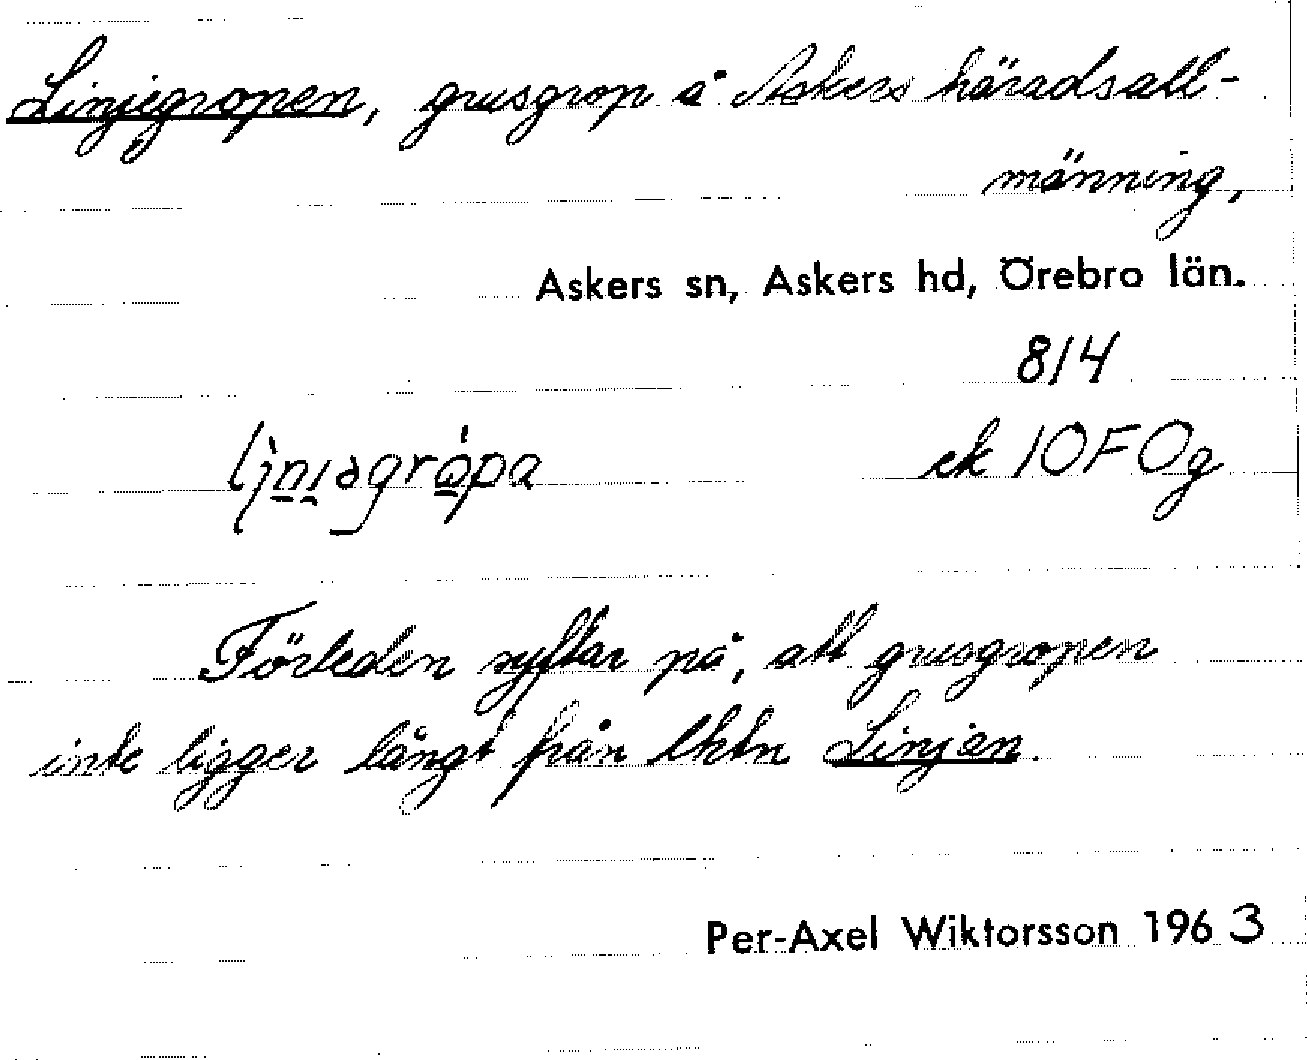 Linjegropen, grusgrop å Askers häradsall-
männing,
Askers sn, Askers hd, Örebro län.
814
ek 10F0g
Förleden syftar på, att grusgropen
inte ligger långt från lhtn Linjen.
Per-Axel Wiktorsson 1963